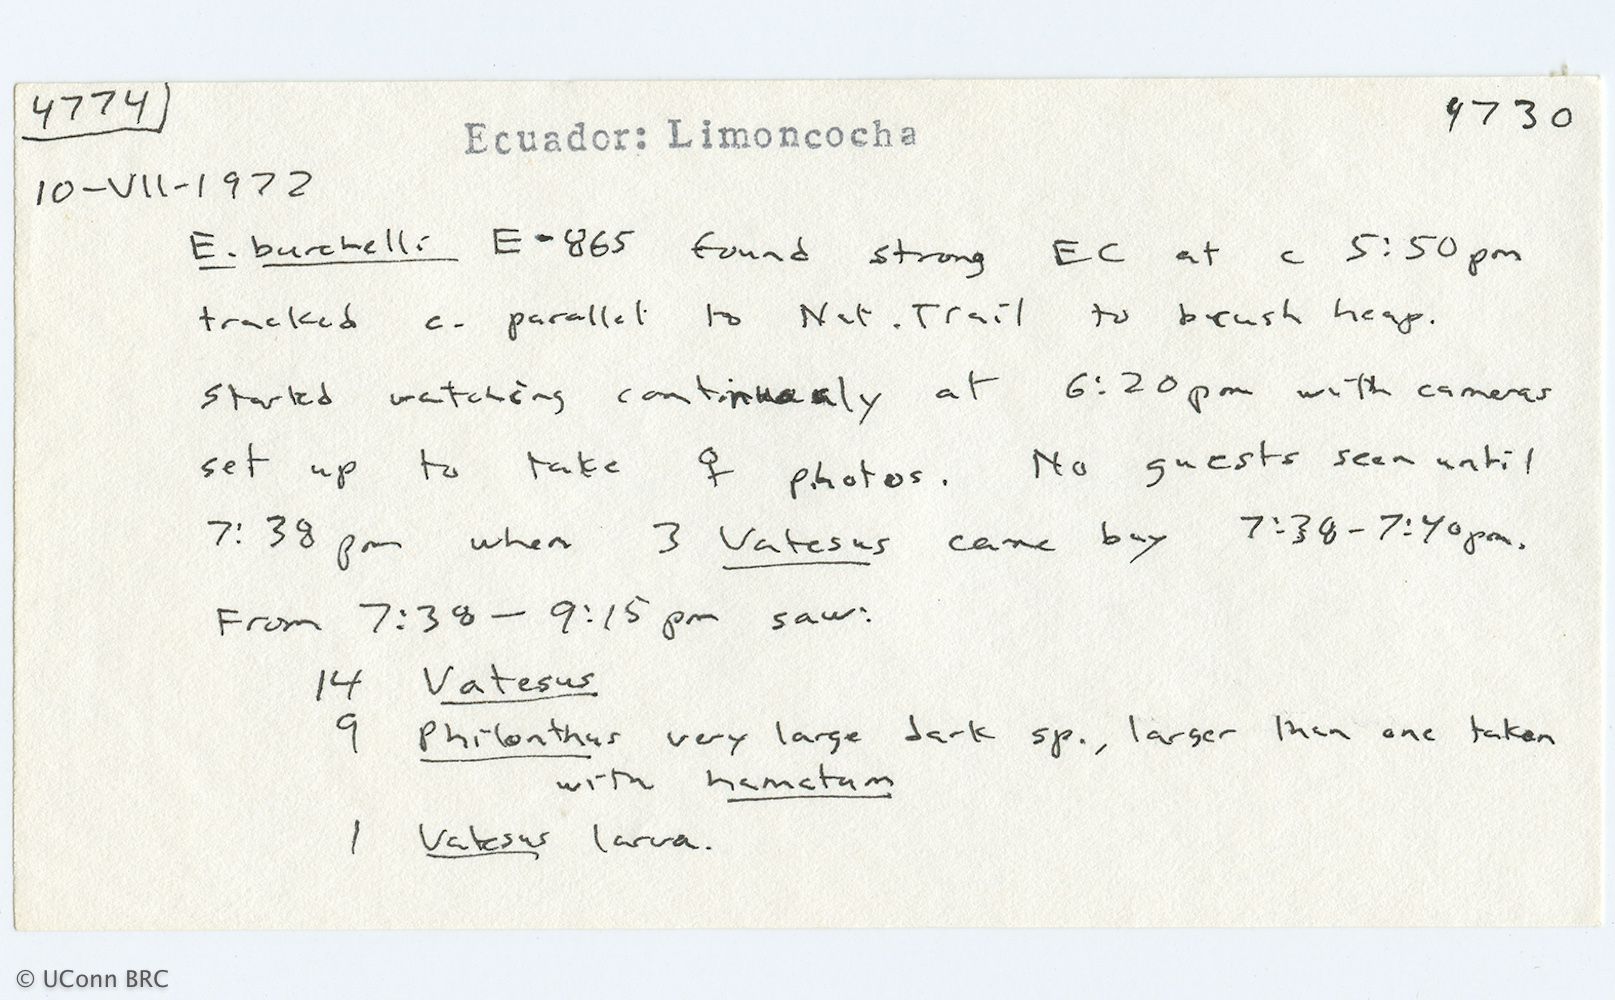 4774
4730
Ecuador: Limoncocha
10-VII-1972
E. burchelli E-865 found strong EC at c 5:50pm
tracked c. parallel to Nat. Trail to brush heap.
Started watching continualy at 6:20pm with cameras
set up to take ♀ photos. No guests seen until
7:38 pm when 3 Vatesus came buy 7:38-7:40pm.
From 7:38 - 9:15pm saw:
14 Vatesus
9 Philonthus very large dark sp., larger than one taken
with hamatum
1 Vatesus larva.
© UConn BRC